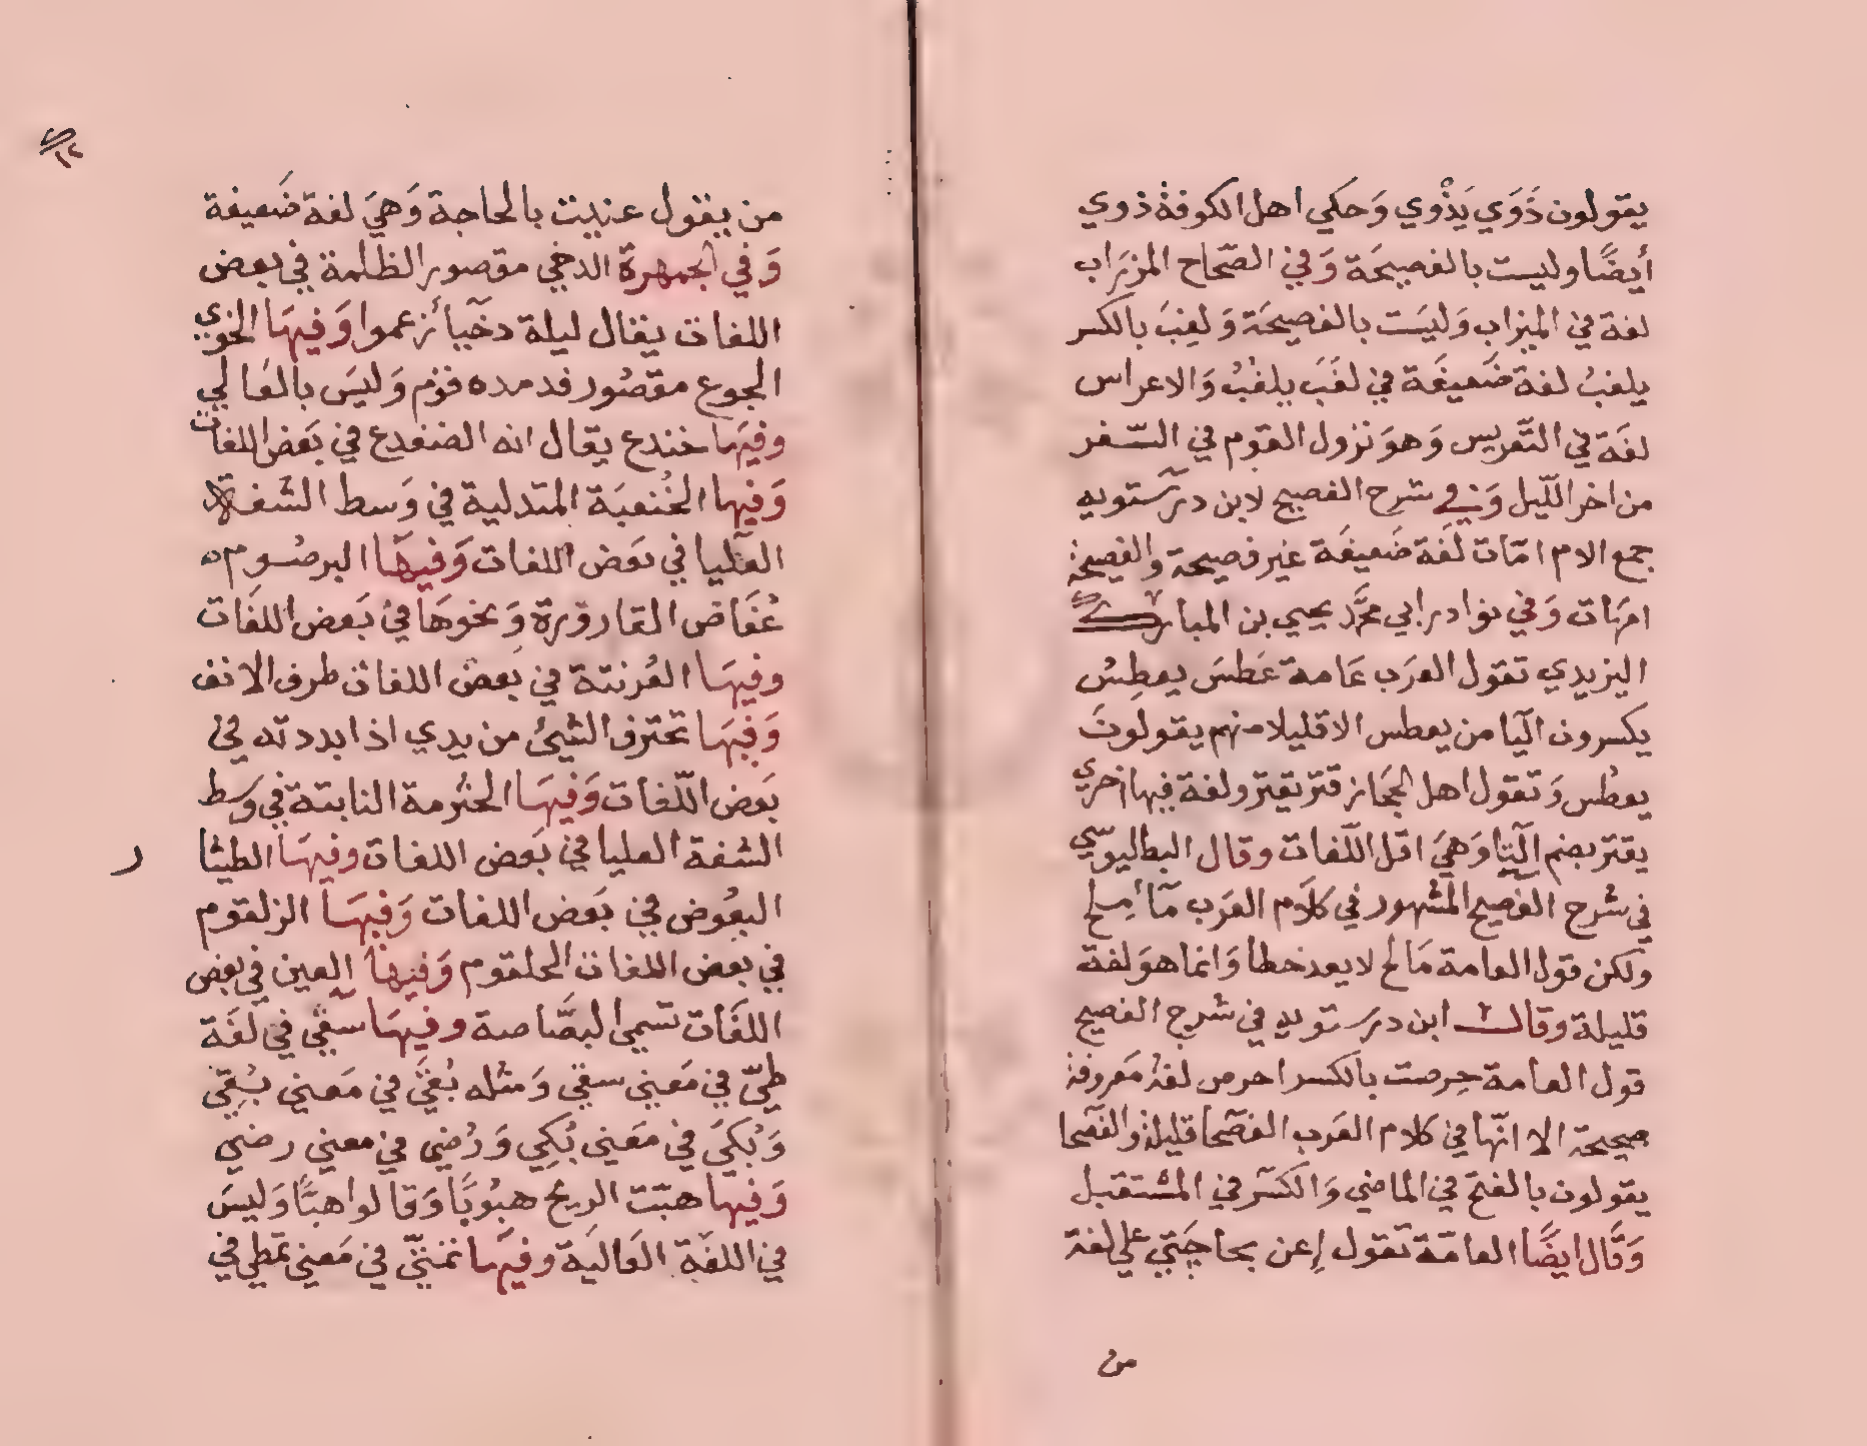 يقولون ذَوَي يَذْوي وَحكي اهل الكوفة ذوي
أيضًا وليست بالفصيحَة وَفي الصّحاح المزراب
لغة في الميزاب وَليسَت بالفصيحَة وَلغِبَ بالكسر
يلغبُ لغة ضَعيفَة في لغَبَ يلغُبُ وَالاعراس
لغَة في التّعريس وَهوَ نزول القوم في السّفر
من اخر اللّيل وَفي شرح الفصيح لابن درستويه
جمع الام امّات لغَة ضَعيفَة غير فصيحة والفصيحة
امهَات وَفي نوادر ابي محمَّد يحيي بن المبارك
اليزيدي تقول العرَب عَامة عَطسَ يعطِسُ
يكسرون اليَا من يعطس الا قليلا منهم يقولونَ
يعطُس وَتقول اهل الحجَاز قتر يقتر ولغة فيها اخري
يقتر بضم التا وَهيَ اقل اللّغات وقال البطليوسي
في شرح الفصيح المشهور في كلَام العرَب مَآ مِلح
ولكن قول العامة مَالح لا يعد خطأ وَانما هوَ لغة
قليلة وقال ابن درستويه في شرح الفصيح
قول العامة حِرصت بالكسر احرص لغة مَعروفة
صحيحة الا انّها في كلام العَرب الفصَحا قليلة والفصَحا
يقولون بالفتح في الماضي وَالكسَر في المستقبل
وَقَال ايضًا العامّة تقول إعن بحاجَتي علي لغة
من
من يقول عنيت بالحاجة وَهيَ لغة ضَعيفة
وَفي الجمهرة الدخي مقصور الظلمة في بعض
اللغات يقال ليلة دخيَا زعموا وَفيهَا الخوي
الجوع مقصُور قد مده قوم وَليسَ بالعَالي
وفيهَا خندع يقال انه الضفدع في بَعض اللغات
وَفيها الخُنعبَة المتدلية في وَسط الشفة
العليا في بعَض اللغات وَفيهَا البرصُوم
عُفَاص القارورة وَنحوهَا في بَعض اللغَات
وفيهَا العُرنتة في بعض اللغات طرف الانف
وَفيهَا تخترف الشيئ من يدي اذا بددته في
بَعض اللّغات وَفيهَا الحثرمة النابتة في وَسط
الشفة العليا في بَعض اللغات وفيهَا الطيثا
البعُوض في بَعض اللغات وَفيهَا الزلقوم
في بعض اللغات الحلقوم وَفيهَا العين في بعض
اللغَات تسمي البصَّاصة وفيهَا سقَي في لغَة
طيّ في مَعني سقي وَمثله بُقَي في مَعني بُقِي
وَبُكَيَ في معَني بُكِي وَرُضي في معني رضي
وَفيها هبّت الريح هبُوبًا وَقالوا هبًّا وَليسَ
في اللغَة العَاليَة وفيهَا تمتّي في مَعني تمطي في